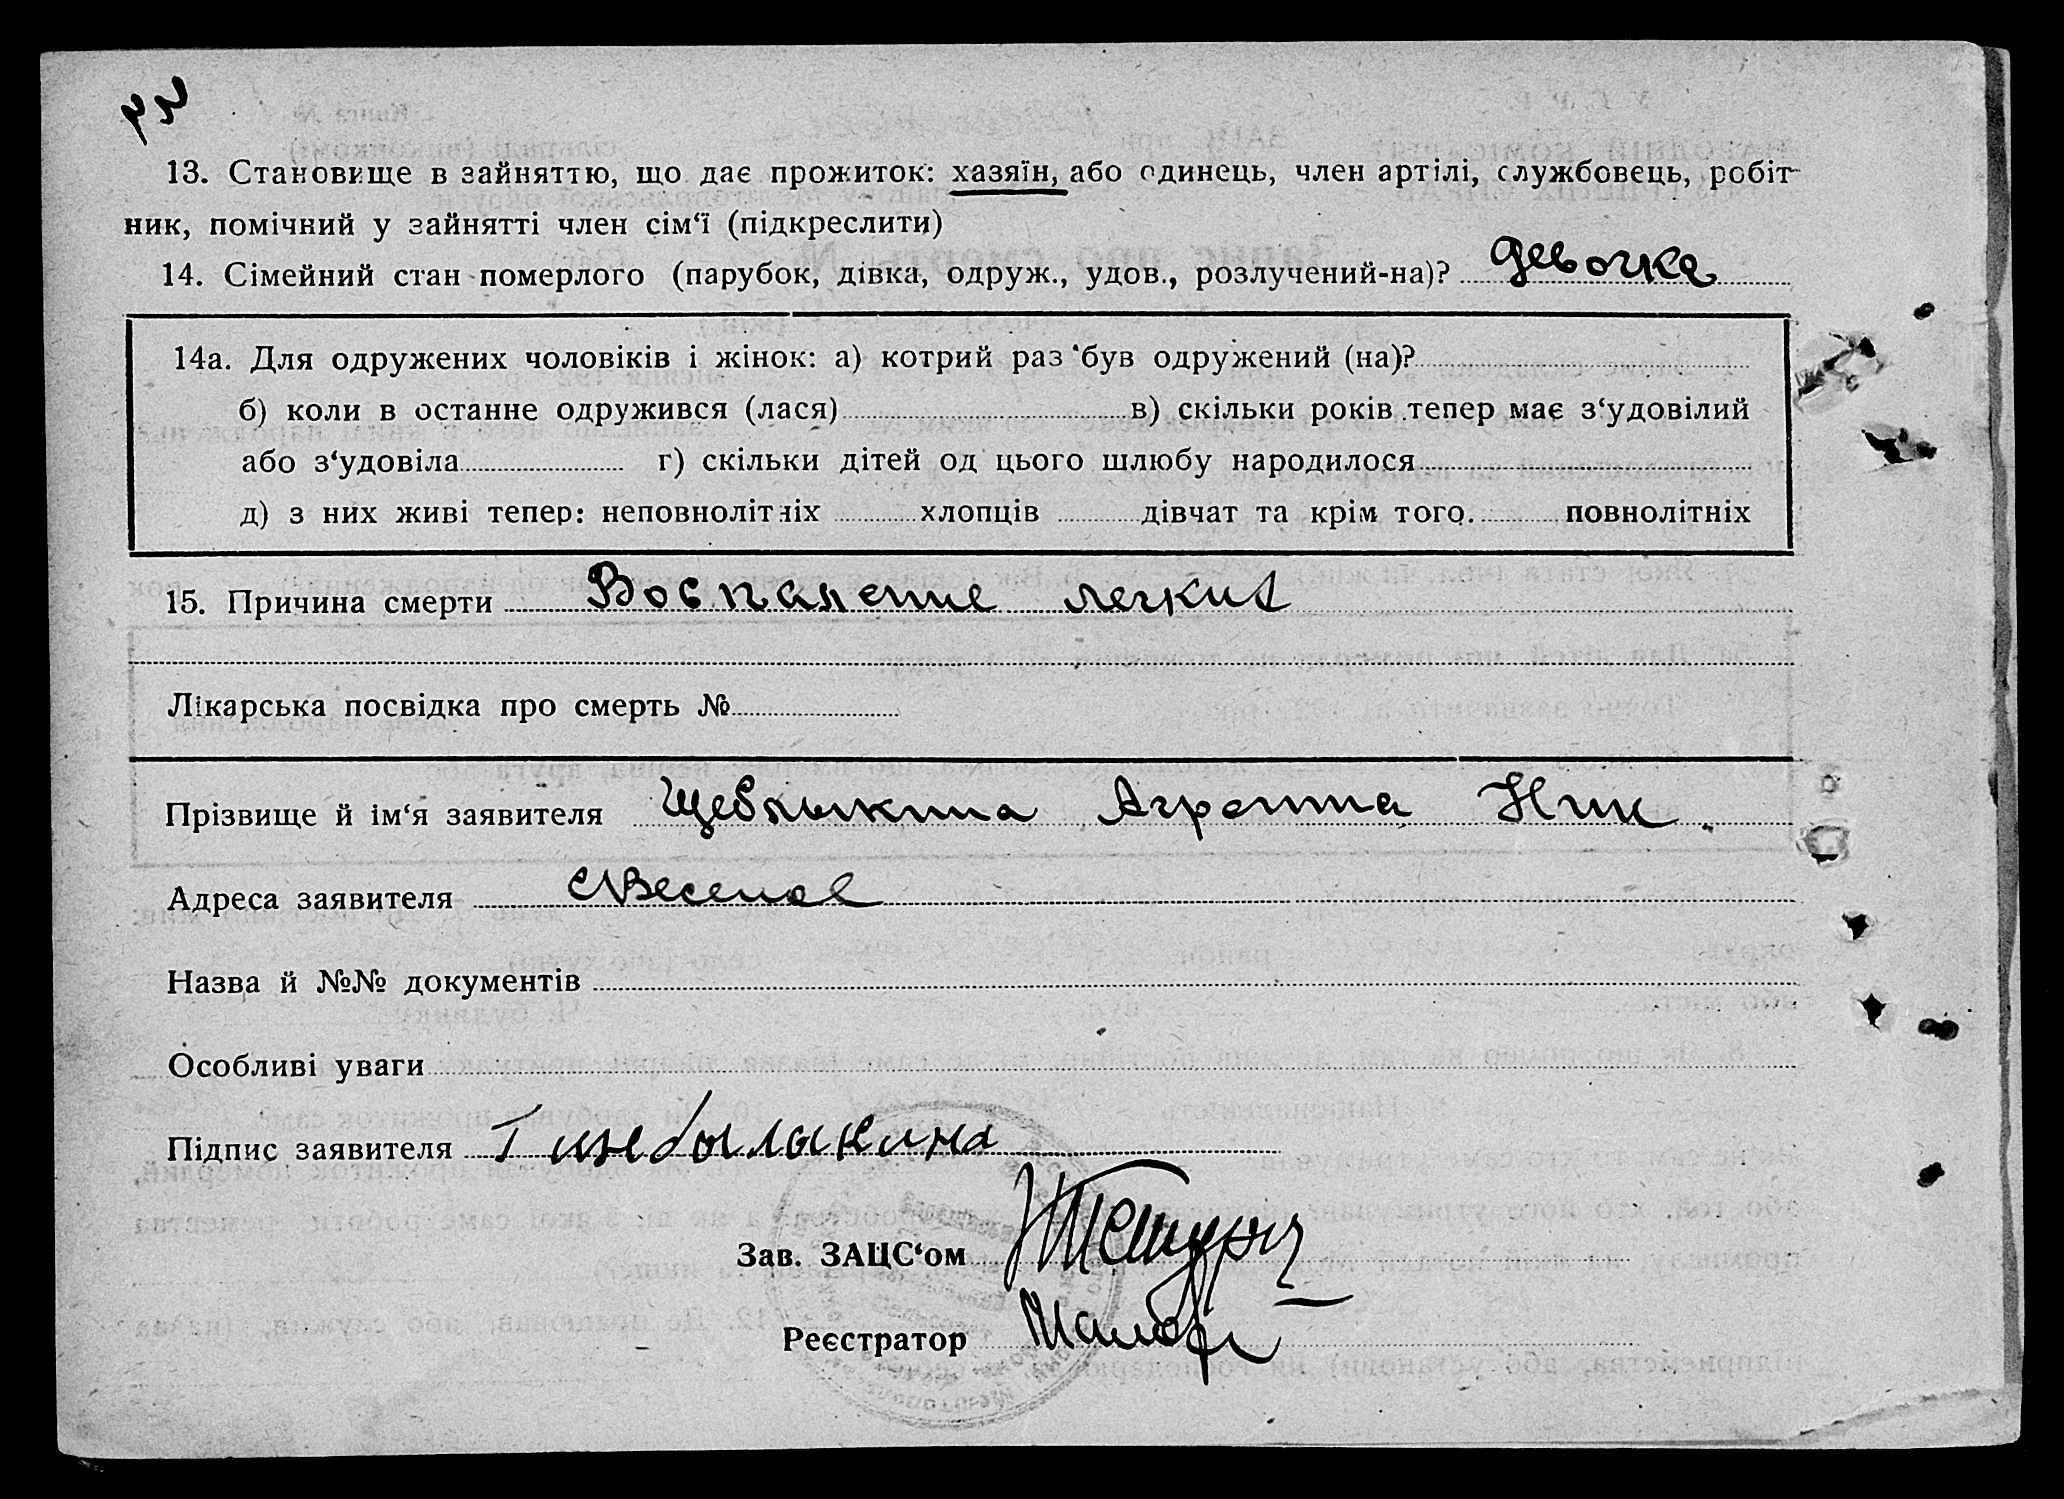 13. Становище в зайняттю, що дає прожиток: хазяїн, або одинець, член артілі, службовець, робіт-
ник, помічний у зайнятті член сім‘ї (підкреслити)
14. Сімейний стан померлого (парубок, дівка, одруж., удов., розлучений-на)? девочка
14а. Для одружених чоловіків і жінок: а) котрий раз був одружений (на)?
б) коли в останне одружився (лася) в) скільки років тепер має з‘удовілий
або з‘удовіла г) скільки дітей од цього шлюбу народилося
д) з них живі тепер: неповнолітніх хлопців дівчат та крім того. повнолітніх
15. Причина смерти Воспаление легких
Лікарська посвідка про смерть №
Прізвище й ім‘я заявителя Агрепина Ник.
Адреса заявителя с Веселое
Назва й №№ документів
Особливі уваги
Підпис заявителя
Зав. ЗАЦС‘ом
Реєстратор